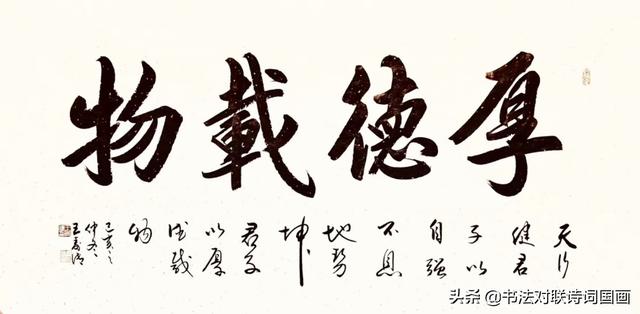 厚德載物
天行
健君
子以
自强
不息
地势
坤
君子
以厚
德载
物
己亥之
仲冬
头条 @书法对联诗词国画